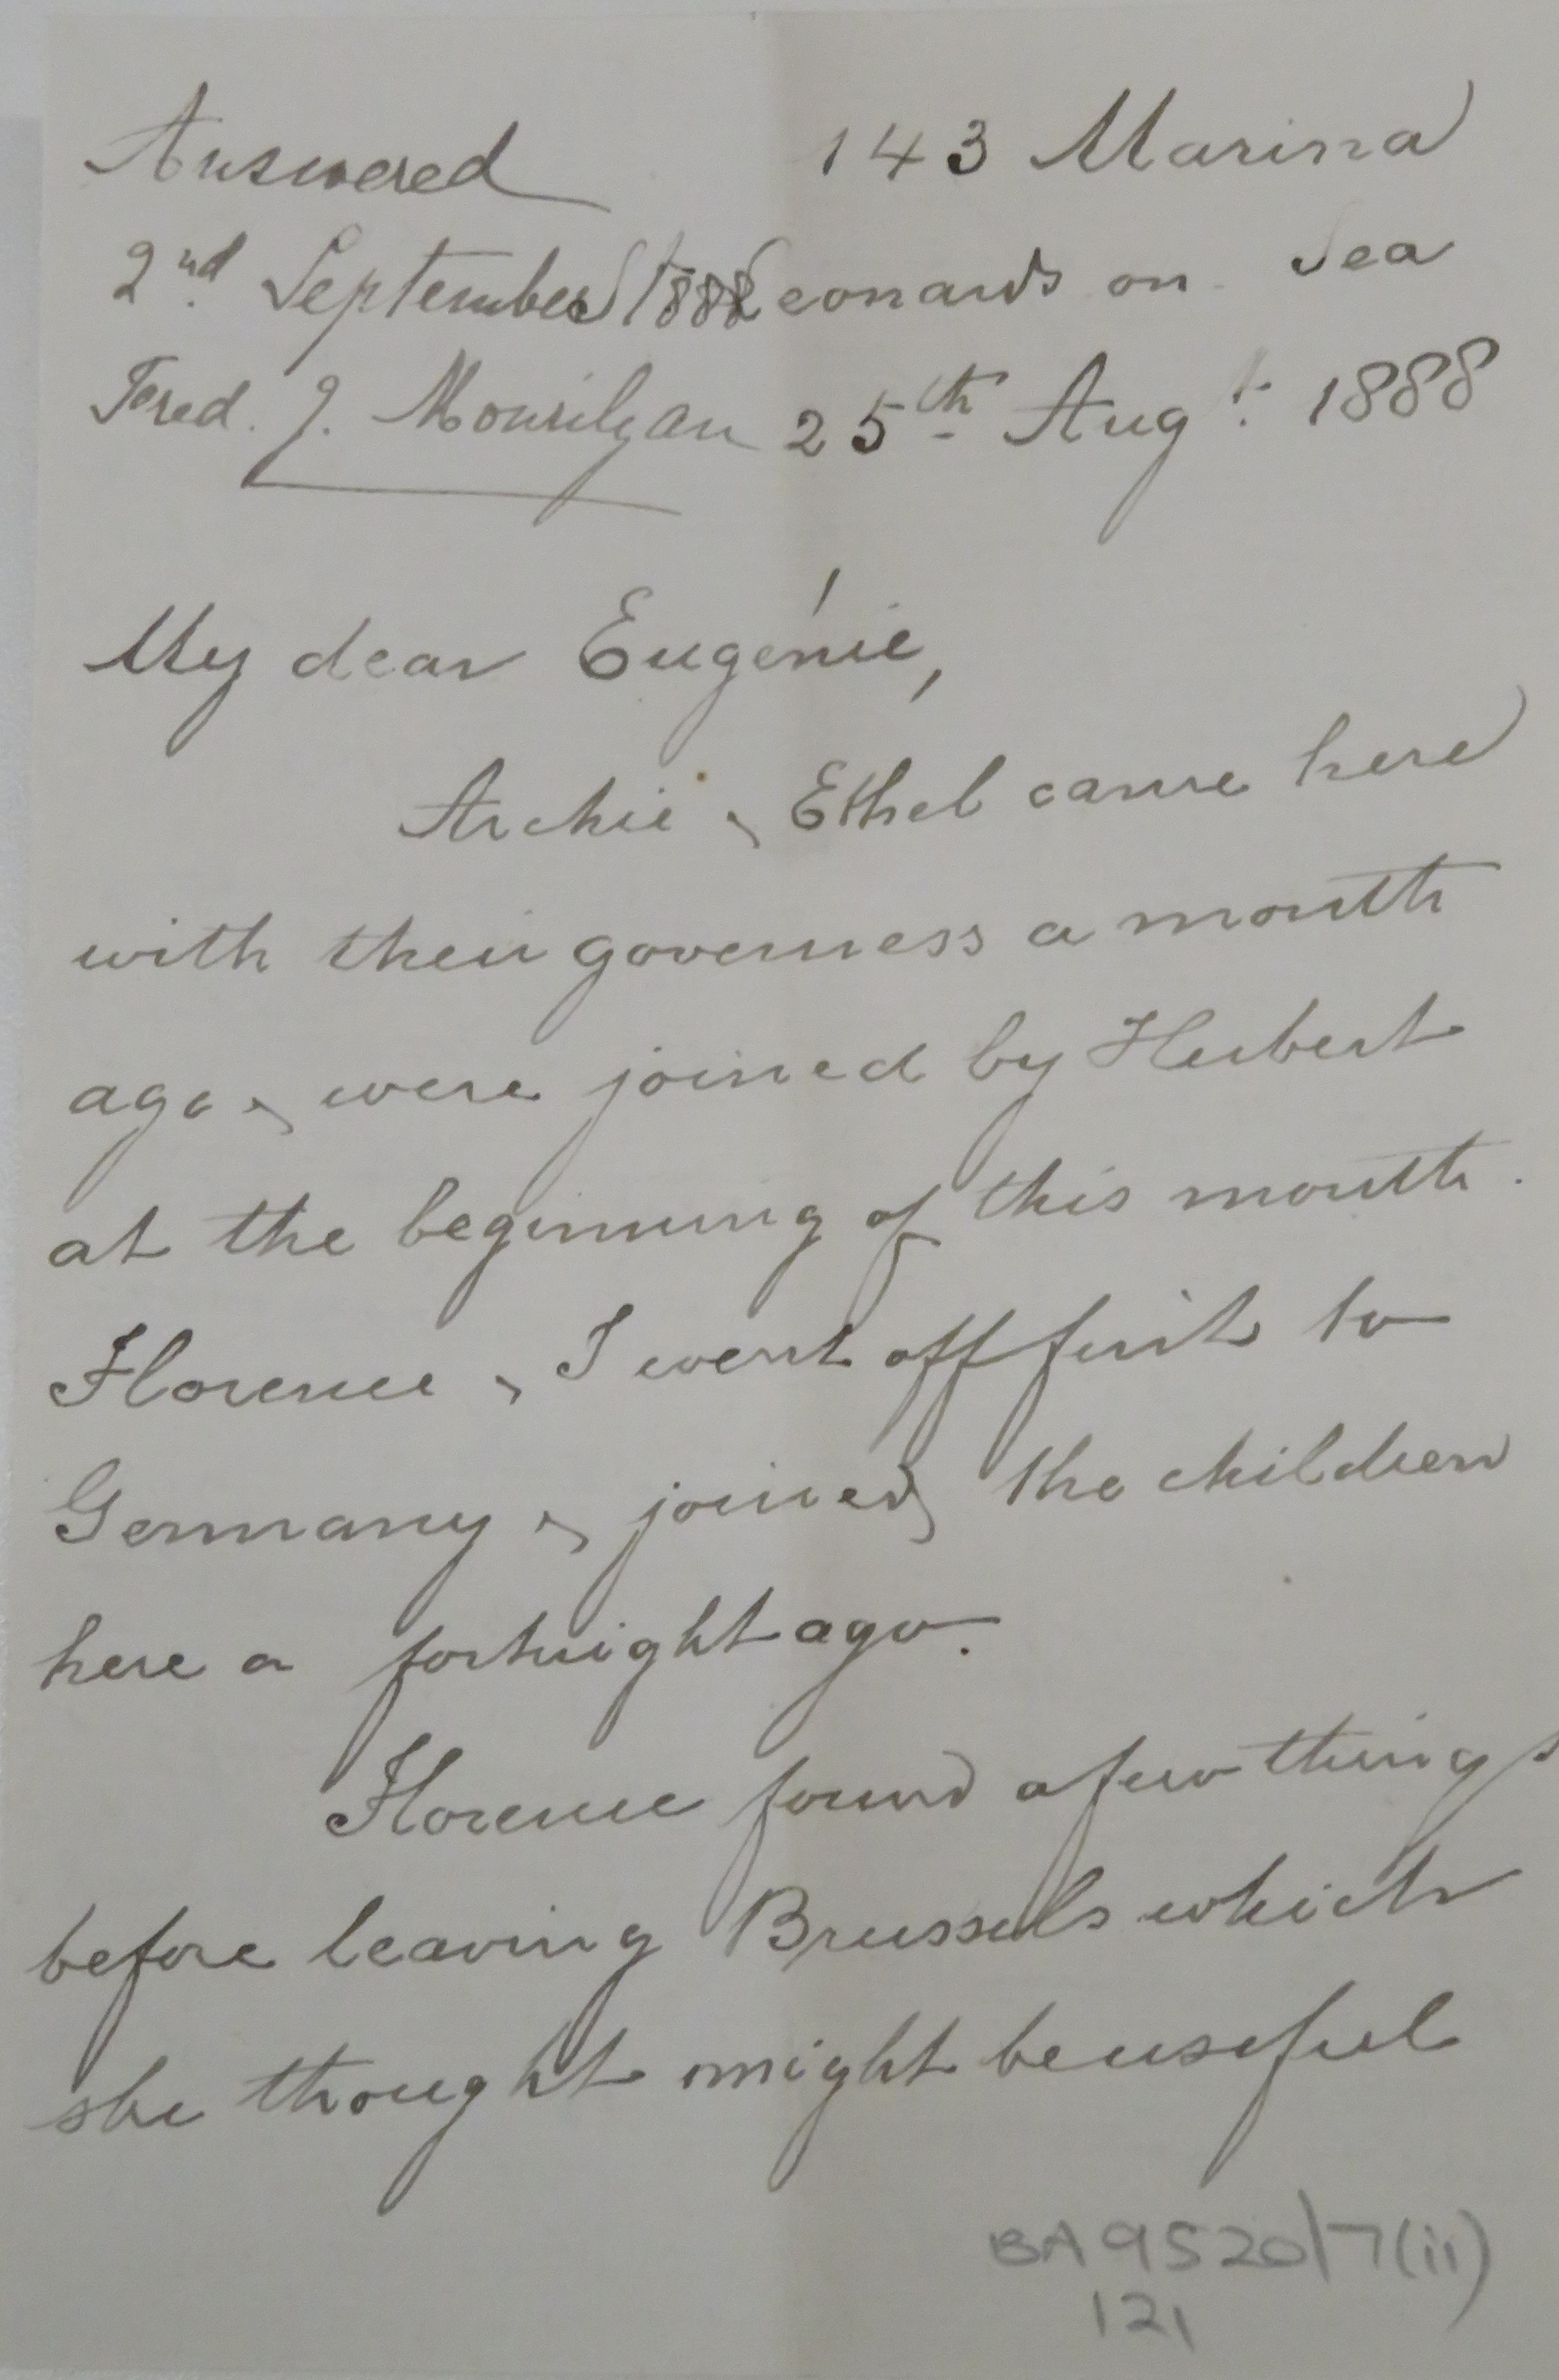 Answered
2nd September 1888
Fred. J. Mourilyan
143 Marina
St Leonards on Sea
25th Augt. 1888
My dear Eugénie,
Archie & Ethel came here
with their governess a month
ago & were joined by Herbert
at the beginning of this month.
Florence & I went off first to
Germany & joined the children
here a fortnight ago.
Florence found a few things
before leaving Brussels which
she thought might be useful
BA9520/7(ii)
121